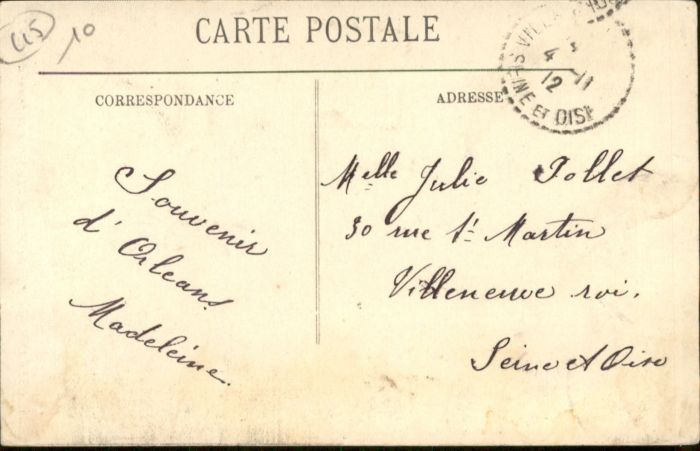 CARTE POSTALE
115
10
4 -11
12
SEINE ET OISE
CORRESPONDANCE
ADRESSE
Souvenir
d'Orléans
Madeleine.
Melle Julie Pollet
30 rue St Martin
Villeneuve roi.
Seine et Oise